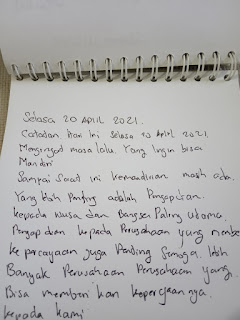 Selasa 20 April 2021.
Catatan Hari ini Selasa 20 April 2021.
Mengingat masa lalu. Yang Ingin bisa
Mandiri
Sampai Saat ini kemandirian masih ada.
Yang lebih Penting adalah Pengabdian.
kepada Nusa dan Bangsa Paling utama.
Pengabdian kepada Perusahaan yang membe
kepercayaan juga Penting Semoga lebih
Banyak Perusahaan Perusahaan yang
Bisa memberikan kepercayaannya.
kepada kami